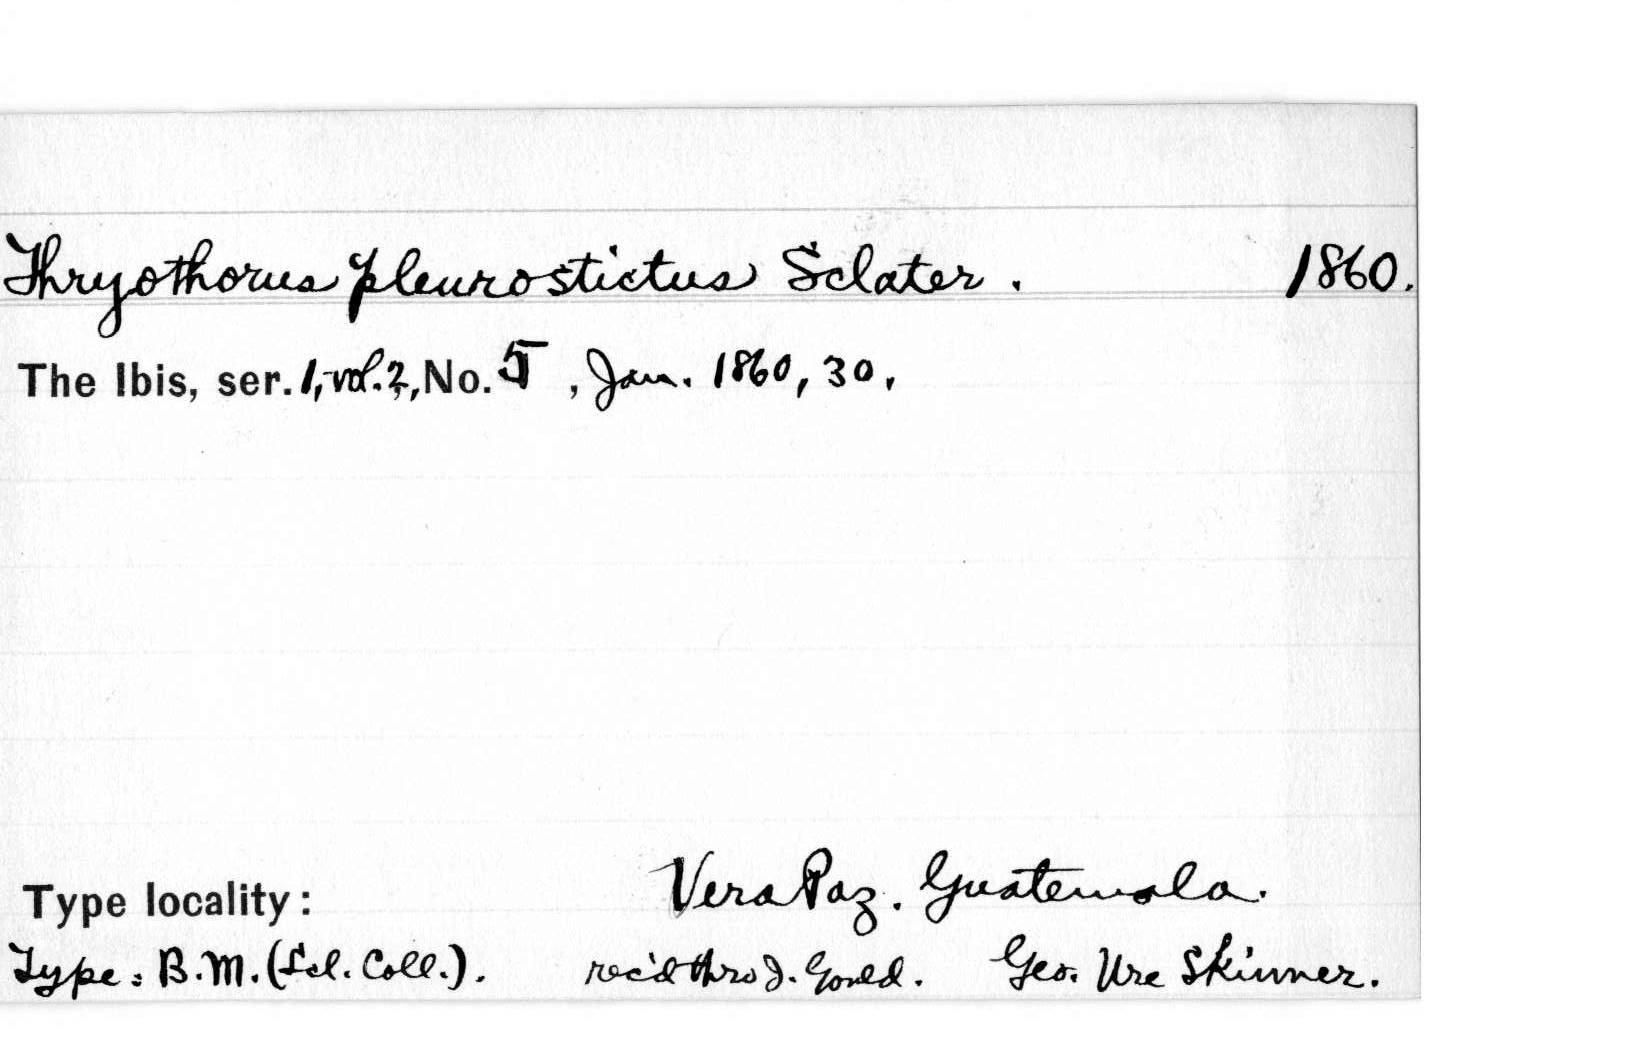 Thryothorus pleurostictus Sclater. 1860.
The Ibis, ser. 1, vol. 2, No. 5, Jan. 1860, 30.
Type locality: Vera Paz. Guatemala.
Type: B.M. (Scl. Coll.). rec'd thro J. Gould. Geo. Ure Skinner.